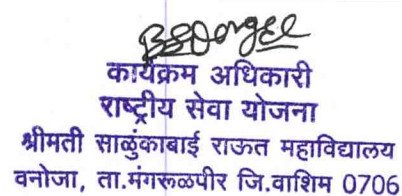 कार्यक्रम अधिकारी
राष्ट्रीय सेवा योजना
श्रीमती साळुंकाबाई राऊत महाविद्यालय
वनोजा, ता.मंगरूळपीर जि.वाशिम 0706